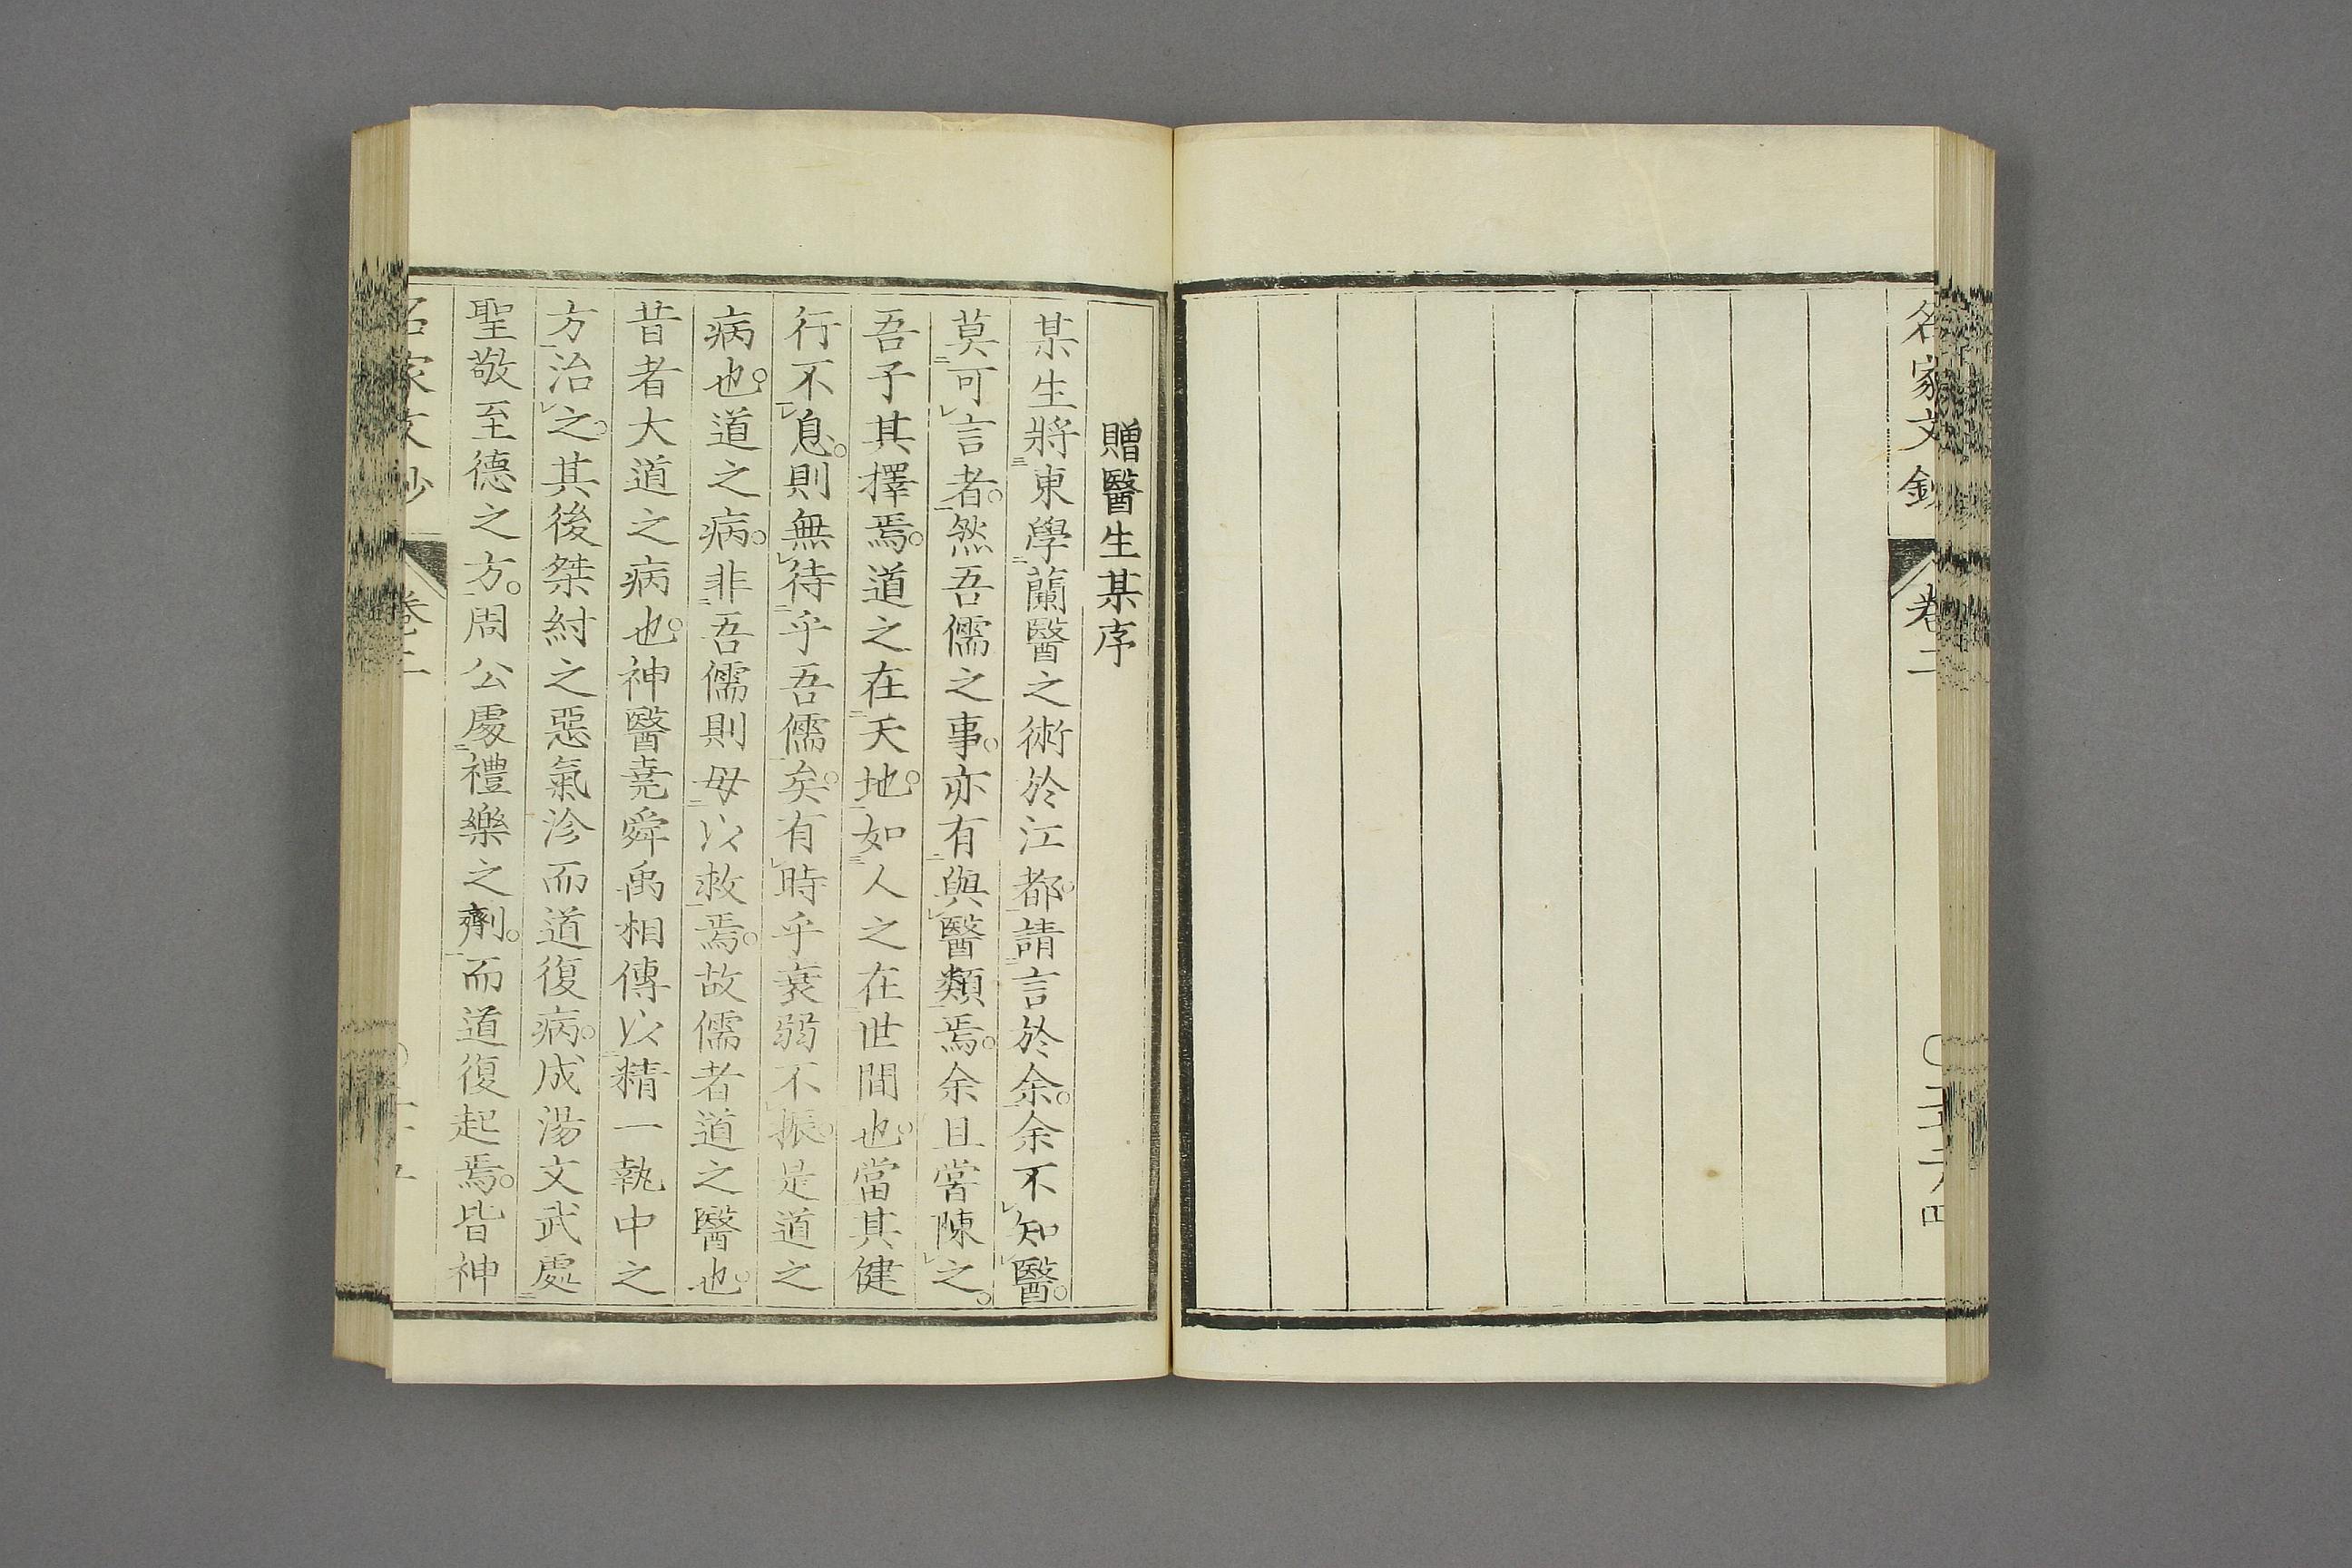 名家文鈔 卷二
贈醫生某序
某生將東學蘭醫之術於江都請言於余余不知醫
莫可言者然吾儒之事亦有與醫類焉余且嘗陳之
吾子其擇焉道之在天地如人之在世間也當其健
行不息則無待乎吾儒矣有時乎衰弱不振是道之
病也道之病非吾儒則毋以救焉故儒者道之醫也
昔者大道之病也神醫堯舜禹相傳以精一執中之
方治之其後桀紂之惡氣沴而道復病成湯文武處
聖敬至德之方周公處禮樂之劑而道復起焉皆神
名家文鈔 卷二